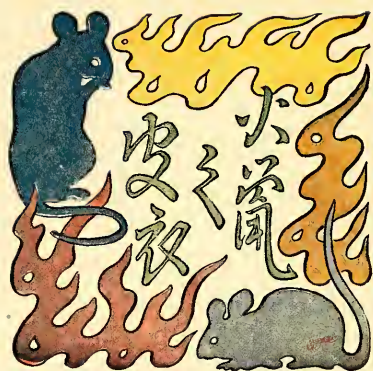 火鼠
之
皮衣